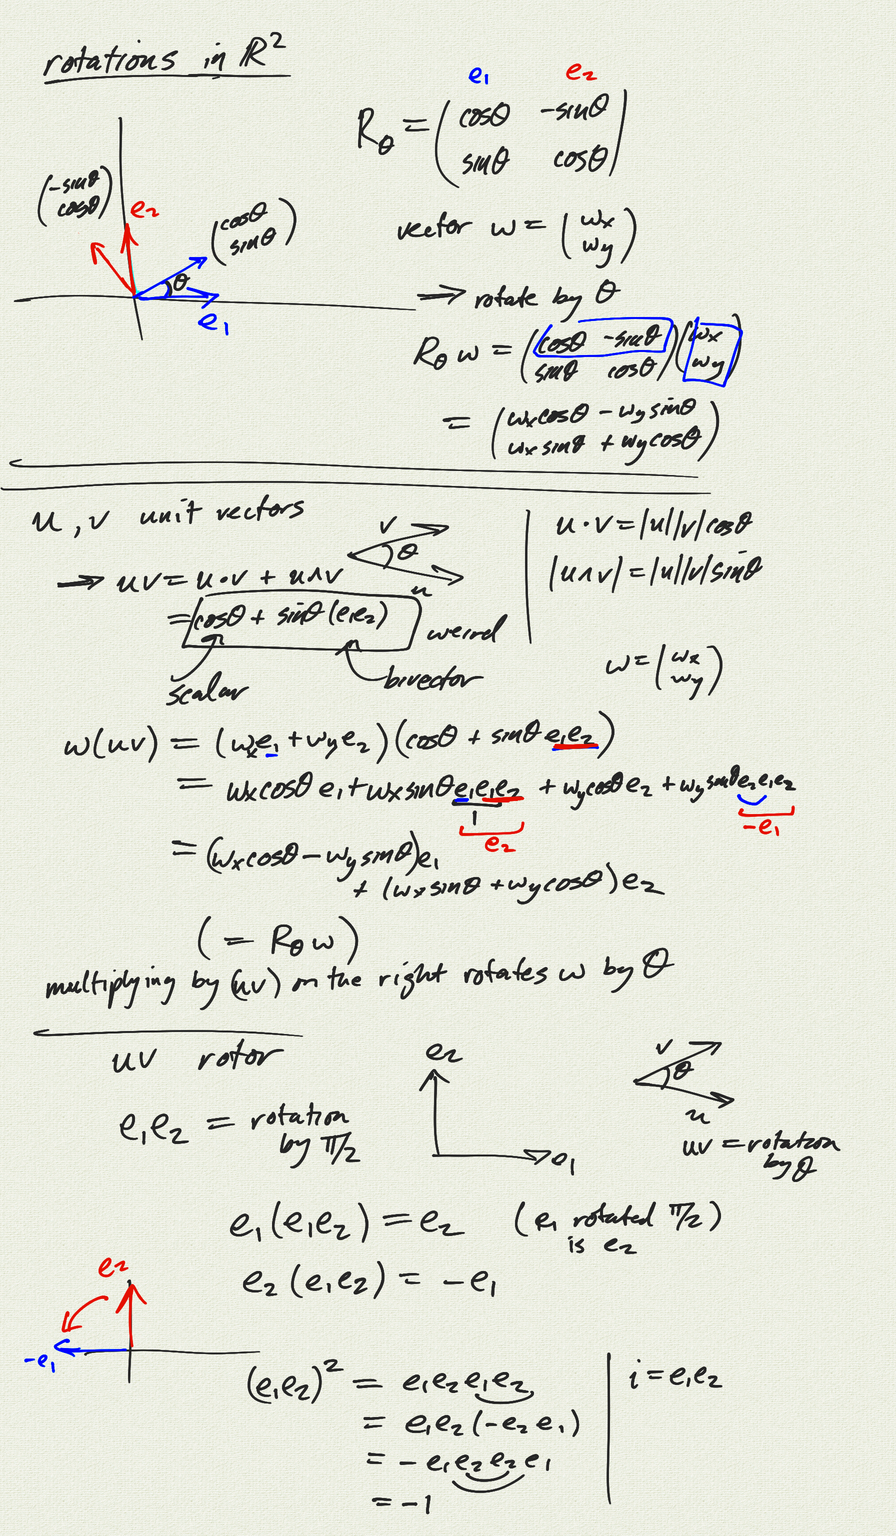 rotations in ℝ²
e₁ e₂
R_θ = (cosθ -sinθ
sinθ cosθ)
(-sinθ
cosθ)
e₂
(cosθ
sinθ)
θ
e₁
vector w = (wx
wy)
→ rotate by θ
R_θ w = (cosθ -sinθ
sinθ cosθ)(wx
wy)
= (wx cosθ - wy sinθ
wx sinθ + wy cosθ)
u, v unit vectors
v
θ
u
→ uv = u·v + u∧v
= cosθ + sinθ (e₁e₂)
weird
scalar
bivector
u·v = |u||v|cosθ
|u∧v| = |u||v|sinθ
w = (wx
wy)
w(uv) = (wx e₁ + wy e₂)(cosθ + sinθ e₁e₂)
= wx cosθ e₁ + wx sinθ e₁e₁e₂ + wy cosθ e₂ + wy sinθ e₂e₁e₂
1
e₂
-e₁
= (wx cosθ - wy sinθ)e₁
+ (wx sinθ + wy cosθ)e₂
(= R_θ w)
multiplying by (uv) on the right rotates w by θ
uv rotor
e₁e₂ = rotation
by π/2
e₂
e₁
v
θ
u
uv = rotation
by θ
e₁(e₁e₂) = e₂ (e₁ rotated π/2)
is e₂
e₂(e₁e₂) = -e₁
e₂
-e₁
(e₁e₂)² = e₁e₂e₁e₂
= e₁e₂(-e₂e₁)
= -e₁e₂e₂e₁
= -1
i = e₁e₂